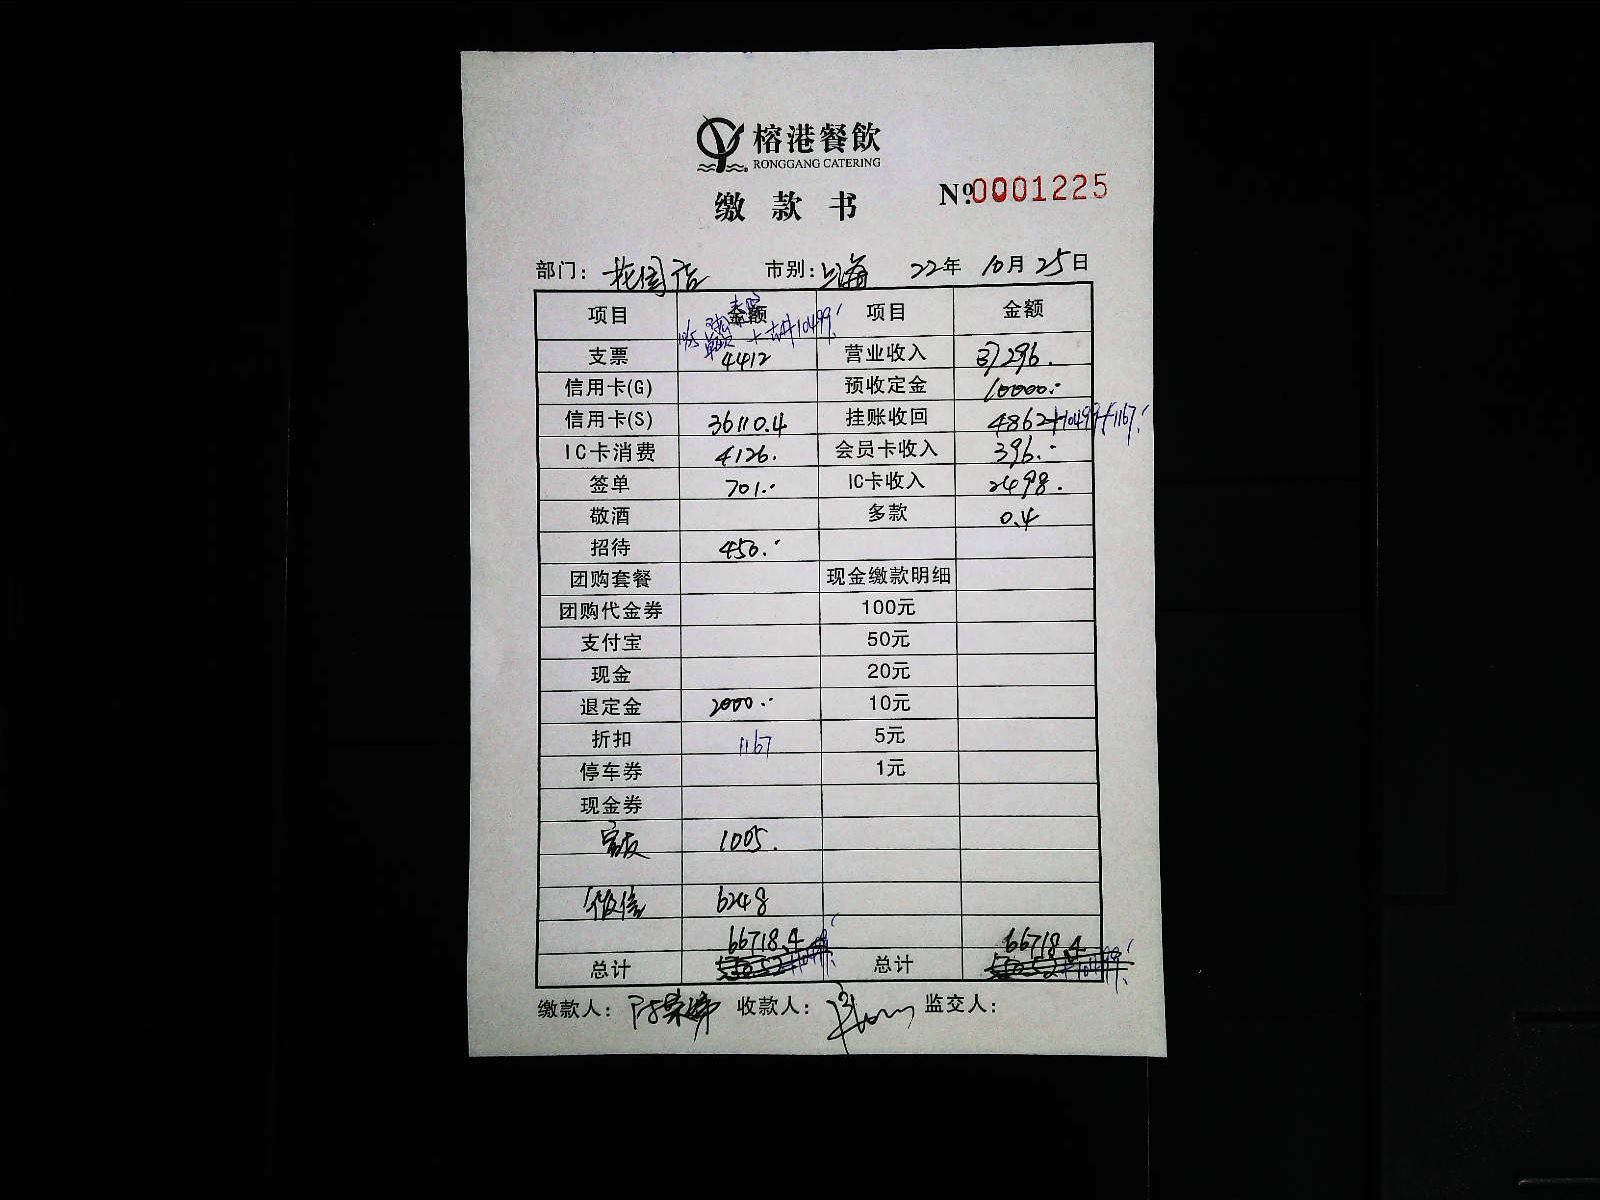 榕港餐飲
RONGGANG CATERING
缴款书
Nº:0001225
部门: 花园店 市别: 上海 22年 10月 25日
项目 金额 项目 金额
+10499.
支票 4412 营业收入 37296.
信用卡(G) 预收定金 10000.-
信用卡(S) 36110.4 挂账收回 4862+10499+1167.
IC卡消费 4126. 会员卡收入 396.-
签单 701.- IC卡收入 2498.
敬酒 多款 0.4
招待 450.-
团购套餐 现金缴款明细
团购代金券 100元
支付宝 50元
现金 20元
退定金 2000.- 10元
折扣 1167 5元
停车券 1元
现金券
1005.
微信 6248
66718.4 66718.4
总计 总计
缴款人: 收款人: 监交人: